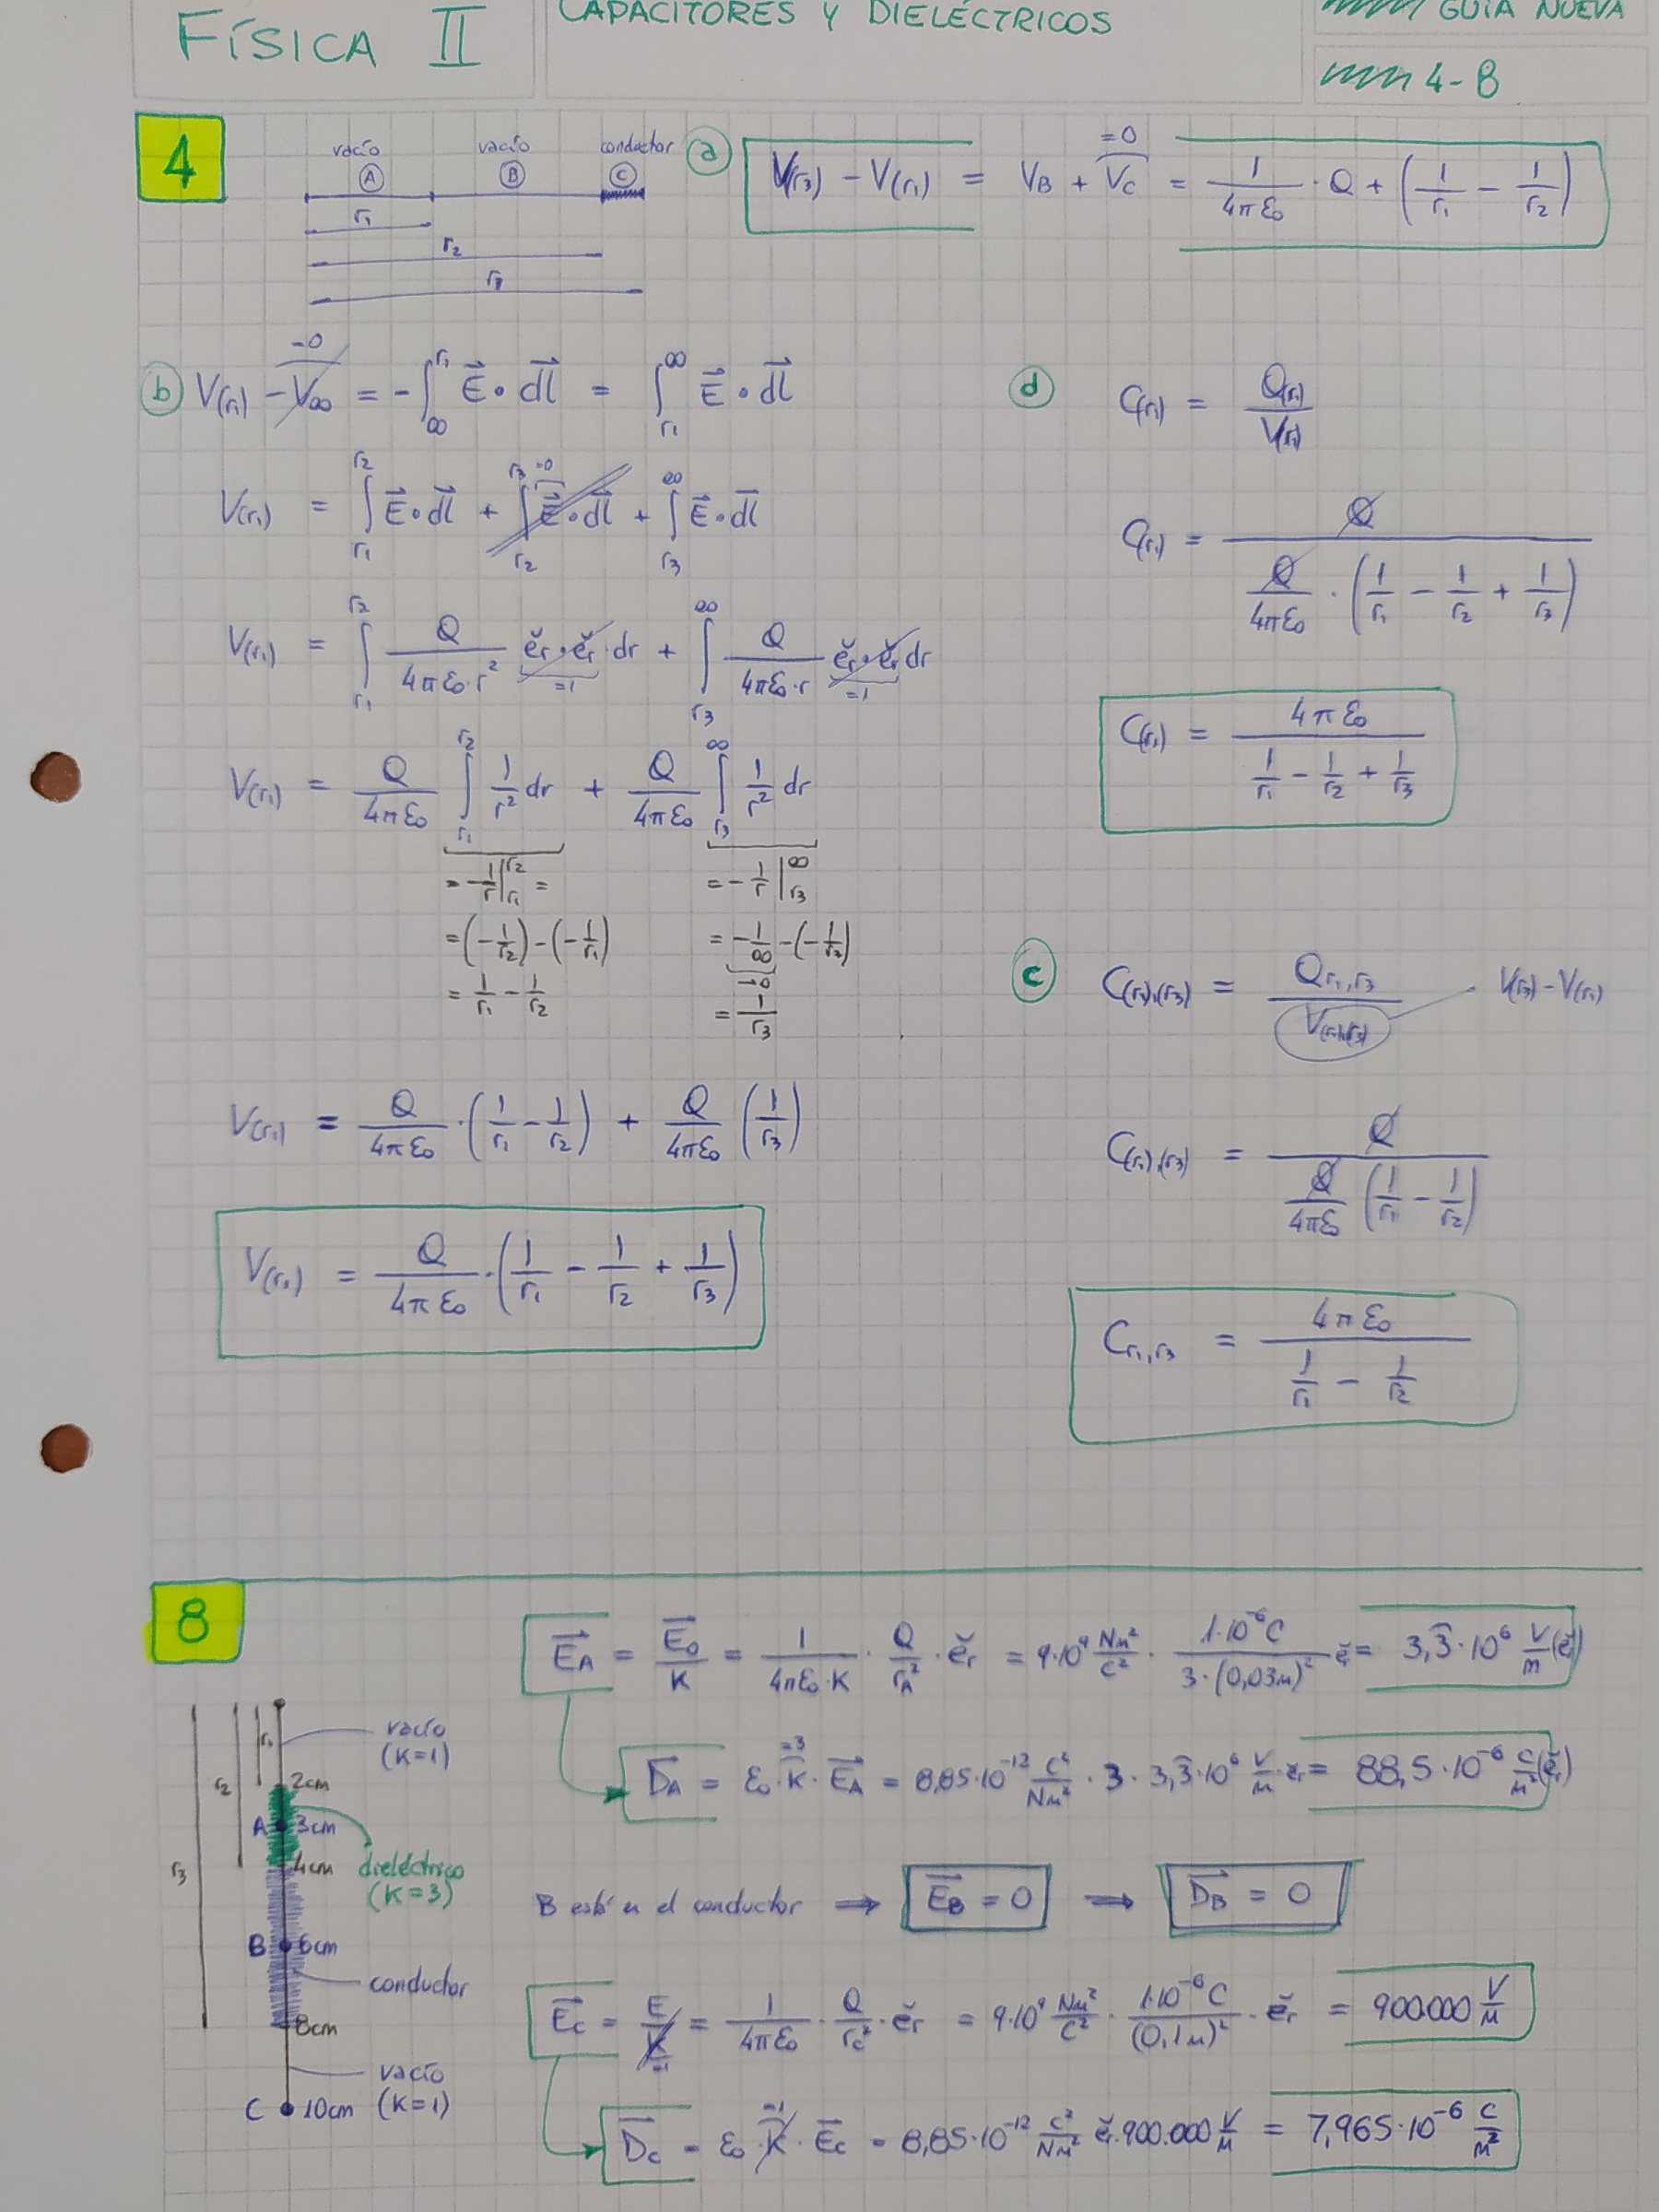 FÍSICA II
CAPACITORES Y DIELÉCTRICOS
GUÍA NUEVA
4-8
4
vacío vacío conductor
A B C
r₁
r₂
r₃
a V(r₃) - V(r₁) = V_B + V_C (=0) = 1/(4πε₀) · Q + (1/r₁ - 1/r₂)
b V(r₁) - V∞ (=0) = -∫_∞^r₁ E⃗ • dl⃗ = ∫_r₁^∞ E⃗ • dl⃗
V(r₁) = ∫_r₁^r₂ E⃗ • dl⃗ + ∫_r₂^r₃ E⃗ (=0) • dl⃗ + ∫_r₃^∞ E⃗ • dl⃗
V(r₁) = ∫_r₁^r₂ Q/(4πε₀·r²) ĕr • ĕr (=1) · dr + ∫_r₃^∞ Q/(4πε₀·r) ĕr • ĕr (=1) dr
V(r₁) = Q/(4πε₀) ∫_r₁^r₂ 1/r² dr + Q/(4πε₀) ∫_r₃^∞ 1/r² dr
= -1/r |_r₁^r₂ = = -1/r |_r₃^∞
= (-1/r₂) - (-1/r₁) = -1/∞ - (-1/r₃)
→0
= 1/r₁ - 1/r₂ = 1/r₃
V(r₁) = Q/(4πε₀) · (1/r₁ - 1/r₂) + Q/(4πε₀) (1/r₃)
V(r₁) = Q/(4πε₀) · (1/r₁ - 1/r₂ + 1/r₃)
d C(r₁) = Q(r₁)/V(r₁)
C(r₁) = Q / (Q/(4πε₀) · (1/r₁ - 1/r₂ + 1/r₃))
C(r₁) = 4πε₀ / (1/r₁ - 1/r₂ + 1/r₃)
c C(r₁),(r₃) = Q r₁,r₃ / V(r₁),(r₃) V(r₃) - V(r₁)
C(r₁),(r₃) = Q / (Q/(4πε) (1/r₁ - 1/r₂))
C r₁,r₃ = 4πε₀ / (1/r₁ - 1/r₂)
8
r₁
r₂
r₃
vacío
(K=1)
2cm
A 3cm
4cm
dieléctrico
(K=3)
B 6cm
conductor
8cm
vacío
(K=1)
C 10cm
E⃗_A = E⃗₀/K = 1/(4πε₀·K) · Q/r_A² · ĕr = 9·10⁹ Nm²/C² · 1·10⁻⁶C/(3·(0,03m)²) ĕr = 3,3̂·10⁶ V/m (ĕr)
D⃗_A = ε₀ · K (=3) · E⃗_A = 8,85·10⁻¹² C²/Nm² · 3 · 3,3̂·10⁶ V/m · ĕr = 88,5·10⁻⁶ C/m² (ĕr)
B está en el conductor ⇒ E⃗_B = 0 ⇒ D⃗_B = 0
E⃗_C = E/K (=1) = 1/(4πε₀) · Q/r_C² · ĕr = 9·10⁹ Nm²/C² · 1·10⁻⁶C/(0,1m)² · ĕr = 900.000 V/m
D⃗_C = ε₀ · K (=1) · E⃗_C = 8,85·10⁻¹² C²/Nm² ĕr · 900.000 V/m = 7,965·10⁻⁶ C/m²